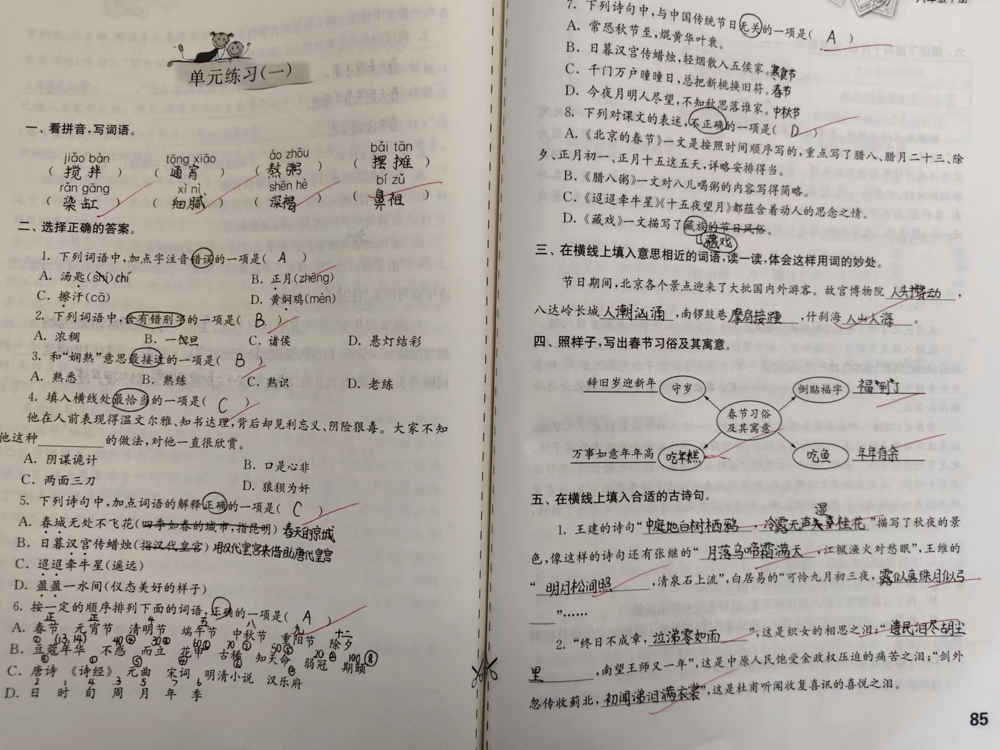 单元练习(一)
一、看拼音,写词语。
jiǎo bàn tōng xiāo áo zhōu bǎi tān
( 搅拌 ) ( 通宵 ) ( 熬粥 ) ( 摆摊 )
rǎn gāng xì nì shēn hè bí zǔ
( 染缸 ) ( 细腻 ) ( 深褐 ) ( 鼻祖 )
二、选择正确的答案。
1. 下列词语中,加点字注音错误的一项是( A )
A. 汤匙(shi)chí B. 正月(zhēng)
C. 擦汗(cā) D. 黄焖鸡(mèn)
2. 下列词语中,含有错别字的一项是( B )
A. 浓稠 B. 一但旦 C. 诸侯 D. 悬灯结彩
3. 和“娴熟”意思最接近的一项是( B )
A. 熟悉 B. 熟练 C. 熟识 D. 老练
4. 填入横线处最恰当的一项是( C )
他在人前表现得温文尔雅、知书达理,背后却见利忘义、阴险狠毒。大家不知
他这种________的做法,对他一直很欣赏。
A. 阴谋诡计 B. 口是心非
C. 两面三刀 D. 狼狈为奸
5. 下列诗句中,加点词语的解释正确的一项是( C )
A. 春城无处不飞花(四季如春的城市,指昆明) 春天的京城
B. 日暮汉宫传蜡烛(指汉代皇宫) 用汉代皇宫来借助唐代皇宫
C. 迢迢牵牛星(遥远)
D. 盈盈一水间(仪态美好的样子)
6. 按一定的顺序排列下面的词语,正确的一项是( A )
正 正 4 五 八 九 十二
A. 春节 元宵节 清明节 端午节 中秋节 重阳节 除夕
B. 豆蔻年华 不惑 而立 花甲 古稀 知天命 弱冠 期颐
C. 唐诗 《诗经》 元曲 宋词 明清小说 汉乐府
D. 日 时 旬 周 月 年 季
7. 下列诗句中,与中国传统节日无关的一项是( A )
A. 常恐秋节至,焜黄华叶衰。
B. 日暮汉宫传蜡烛,轻烟散入五侯家。寒食节
C. 千门万户曈曈日,总把新桃换旧符。春节
D. 今夜月明人尽望,不知秋思落谁家。中秋节
8. 下列对课文的表述,不正确的一项是( D )
A.《北京的春节》一文是按照时间顺序写的,重点写了腊八、腊月二十三、除
夕、正月初一、正月十五这五天,详略安排得当。
B.《腊八粥》一文对八儿喝粥的内容写得简略。
C.《迢迢牵牛星》《十五夜望月》都蕴含着动人的思念之情。
D.《藏戏》一文描写了藏族的节日风俗。
藏戏
三、在横线上填入意思相近的词语,读一读,体会这样用词的妙处。
节日期间,北京各个景点迎来了大批国内外游客。故宫博物院 人头攒动 ,
八达岭长城 人潮汹涌 ,南锣鼓巷 摩肩接踵 ,什刹海 人山人海 。
四、照样子,写出春节习俗及其寓意。
辞旧岁迎新年 守岁 倒贴福字 福“到”了
春节习俗
及其寓意
万事如意年年高 吃年糕 吃鱼 年年有余
五、在横线上填入合适的古诗句。
湿
1. 王建的诗句“ 中庭地白树栖鸦 , 冷露无声桂花 ”描写了秋夜的景
色,像这样的诗句还有张继的“ 月落乌啼霜满天 ,江枫渔火对愁眠”,王维的
“ 明月松间照 ,清泉石上流”,白居易的“可怜九月初三夜, 露似真珠月似弓
”……
2. “终日不成章, 泣涕零如雨 ”,这是织女的相思之泪;“ 遗民泪尽胡尘
里 ,南望王师又一年”,这是中原人民饱受金政权压迫的痛苦之泪;“剑外
忽传收蓟北, 初闻涕泪满衣裳 ”,这是杜甫听闻收复喜讯的喜悦之泪。
85